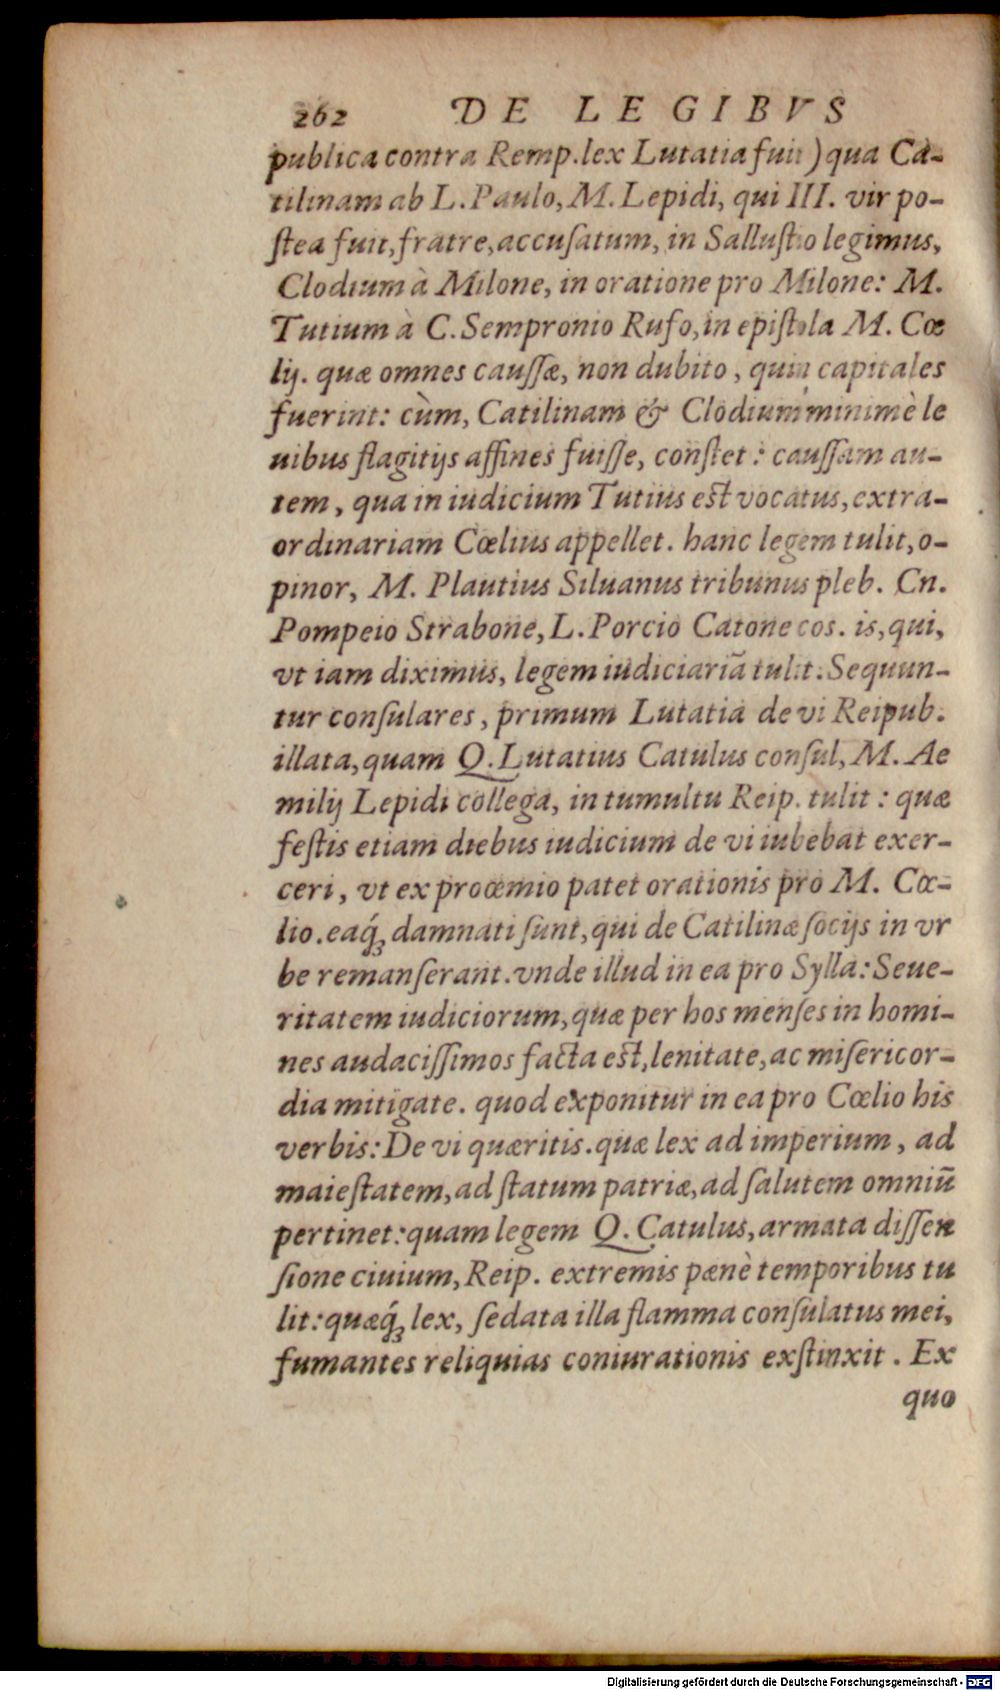 262 DE LEGIBVS
publica contra Remp. lex Lutatia fuit) qua Ca-
tilinam ab L. Paulo, M. Lepidi, qui III. vir po-
ſtea fuit, fratre, accuſatum, in Salluſtio legimus,
Clodium à Milone, in oratione pro Milone: M.
Tutium à C. Sempronio Rufo, in epiſtola M. Cœ
lij. quæ omnes cauſſæ, non dubito, quin capitales
fuerint: cùm, Catilinam & Clodium minimè le
uibus flagitijs affines fuiſſe, conſtet: cauſſam au-
tem, qua in iudicium Tutius est vocatus, extra-
ordinariam Cœlius appellet. hanc legem tulit, o-
pinor, M. Plautius Siluanus tribunus pleb. Cn.
Pompeio Strabone, L. Porcio Catone cos. is, qui,
vt iam diximus, legem iudiciariā tulit. Sequun-
tur conſulares, primum Lutatia de vi Reipub.
illata, quam Q. Lutatius Catulus conſul, M. Ae
milij Lepidi collega, in tumultu Reip. tulit: quæ
feſtis etiam diebus iudicium de vi iubebat exer-
ceri, vt ex proœmio patet orationis pro M. Cœ-
lio. eaq́ꝫ damnati ſunt, qui de Catilinæ ſocijs in vr
be remanſerant. vnde illud in ea pro Sylla: Seue-
ritatem iudiciorum, quæ per hos menſes in homi-
nes audaciſſimos facta est, lenitate, ac miſericor-
dia mitigate. quod exponitur in ea pro Cœlio his
verbis: De vi quæritis. quæ lex ad imperium, ad
maieſtatem, ad ſtatum patriæ, ad ſalutem omniū
pertinet: quam legem Q. Catulus, armata diſſen
ſione ciuium, Reip. extremis pænè temporibus tu
lit: quæq́ꝫ lex, ſedata illa flamma conſulatus mei,
fumantes reliquias coniurationis exſtinxit. Ex
quo
Digitalisierung gefördert durch die Deutsche Forschungsgemeinschaft - DFG